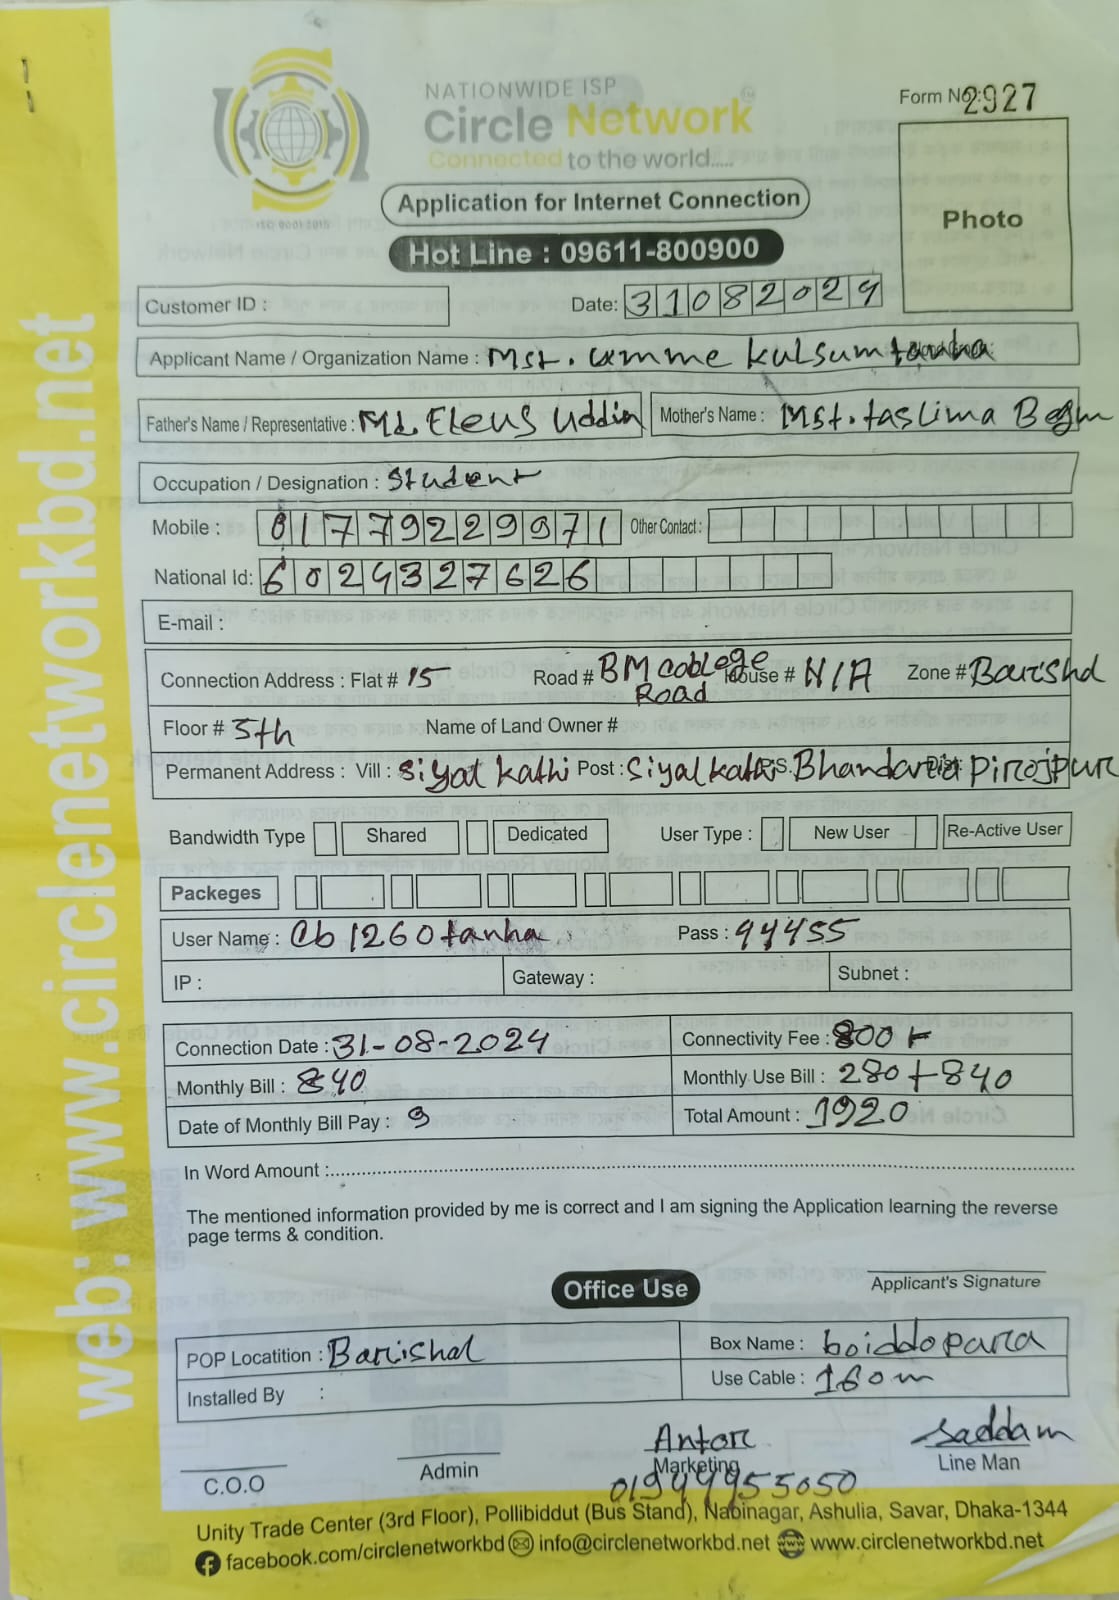 NATIONWIDE ISP
Circle Network
Connected to the world.....
ISO 9001:2015
Form No: 2927
Application for Internet Connection
Photo
Hot Line : 09611-800900
Customer ID :
Date: 31082024
Applicant Name / Organization Name : Mst. umme kulsum tanha
Father's Name / Representative : Md. Eleus Uddin Mother's Name : Mst. taslima Begm
Occupation / Designation : Student
Mobile : 01779229971 Other Contact :
National Id: 6024327626
E-mail :
Connection Address : Flat # 15 Road # BM college Road House # N/A Zone # Barishal
Floor # 5th Name of Land Owner #
Permanent Address : Vill : Siyal kathi Post : Siyal kathi P.S. Bhandaria Dist: Pirojpur
Bandwidth Type Shared Dedicated User Type : New User Re-Active User
Packeges
User Name : cb1260tanha Pass : 44455
IP : Gateway : Subnet :
Connection Date : 31-08-2024 Connectivity Fee : 800
Monthly Bill : 840 Monthly Use Bill : 280+840
Date of Monthly Bill Pay : 9 Total Amount : 1920
In Word Amount :
The mentioned information provided by me is correct and I am signing the Application learning the reverse
page terms & condition.
Applicant's Signature
Office Use
POP Locatition : Barishal Box Name : boiddopara
Installed By : Use Cable : 160m
Antor Saddam
C.O.O Admin Marketing Line Man
01944955050
Unity Trade Center (3rd Floor), Pollibiddut (Bus Stand), Nabinagar, Ashulia, Savar, Dhaka-1344
facebook.com/circlenetworkbd info@circlenetworkbd.net www.circlenetworkbd.net
web: www.circlenetworkbd.net